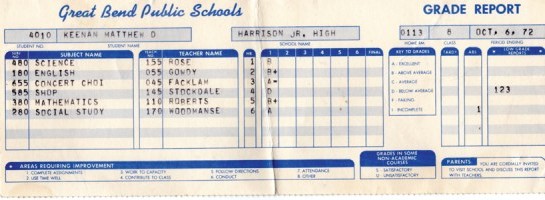 Great Bend Public Schools GRADE REPORT
4010 KEENAN MATTHEW D HARRISON JR. HIGH 0113 8 OCT. 6, 72
STUDENT NO. STUDENT NAME SCHOOL NAME HOME RM CLASS DATE
SUBJECT NAME TEACHER NAME HR 1 2 3 4 5 6 FINAL KEY TO GRADES TARDY ABS LOW GRADE REPORTS
480 SCIENCE 155 ROSE 1 B
180 ENGLISH 055 GOWDY 2 B+
655 CONCERT CHOI 045 FACKLAM 3 A-
585 SHOP 145 STOCKDALE 4 D 123
380 MATHEMATICS 110 ROBERTS 5 B+
280 SOCIAL STUDY 170 WOODMANSE 6 A 1
A - EXCELLENT
B - ABOVE AVERAGE
C - AVERAGE
D - BELOW AVERAGE
F - FAILING
I - INCOMPLETE
AREAS REQUIRING IMPROVEMENT
1. COMPLETE ASSIGNMENTS 3. WORK TO CAPACITY 5. FOLLOW DIRECTIONS 7. ATTENDANCE
2. USE TIME WELL 4. CONTRIBUTE TO CLASS 6. CONDUCT 8. OTHER
GRADES IN SOME NON-ACADEMIC COURSES
S - SATISFACTORY
U - UNSATISFACTORY
PARENTS: YOU ARE CORDIALLY INVITED
TO VISIT SCHOOL AND DISCUSS THIS REPORT
WITH TEACHERS.